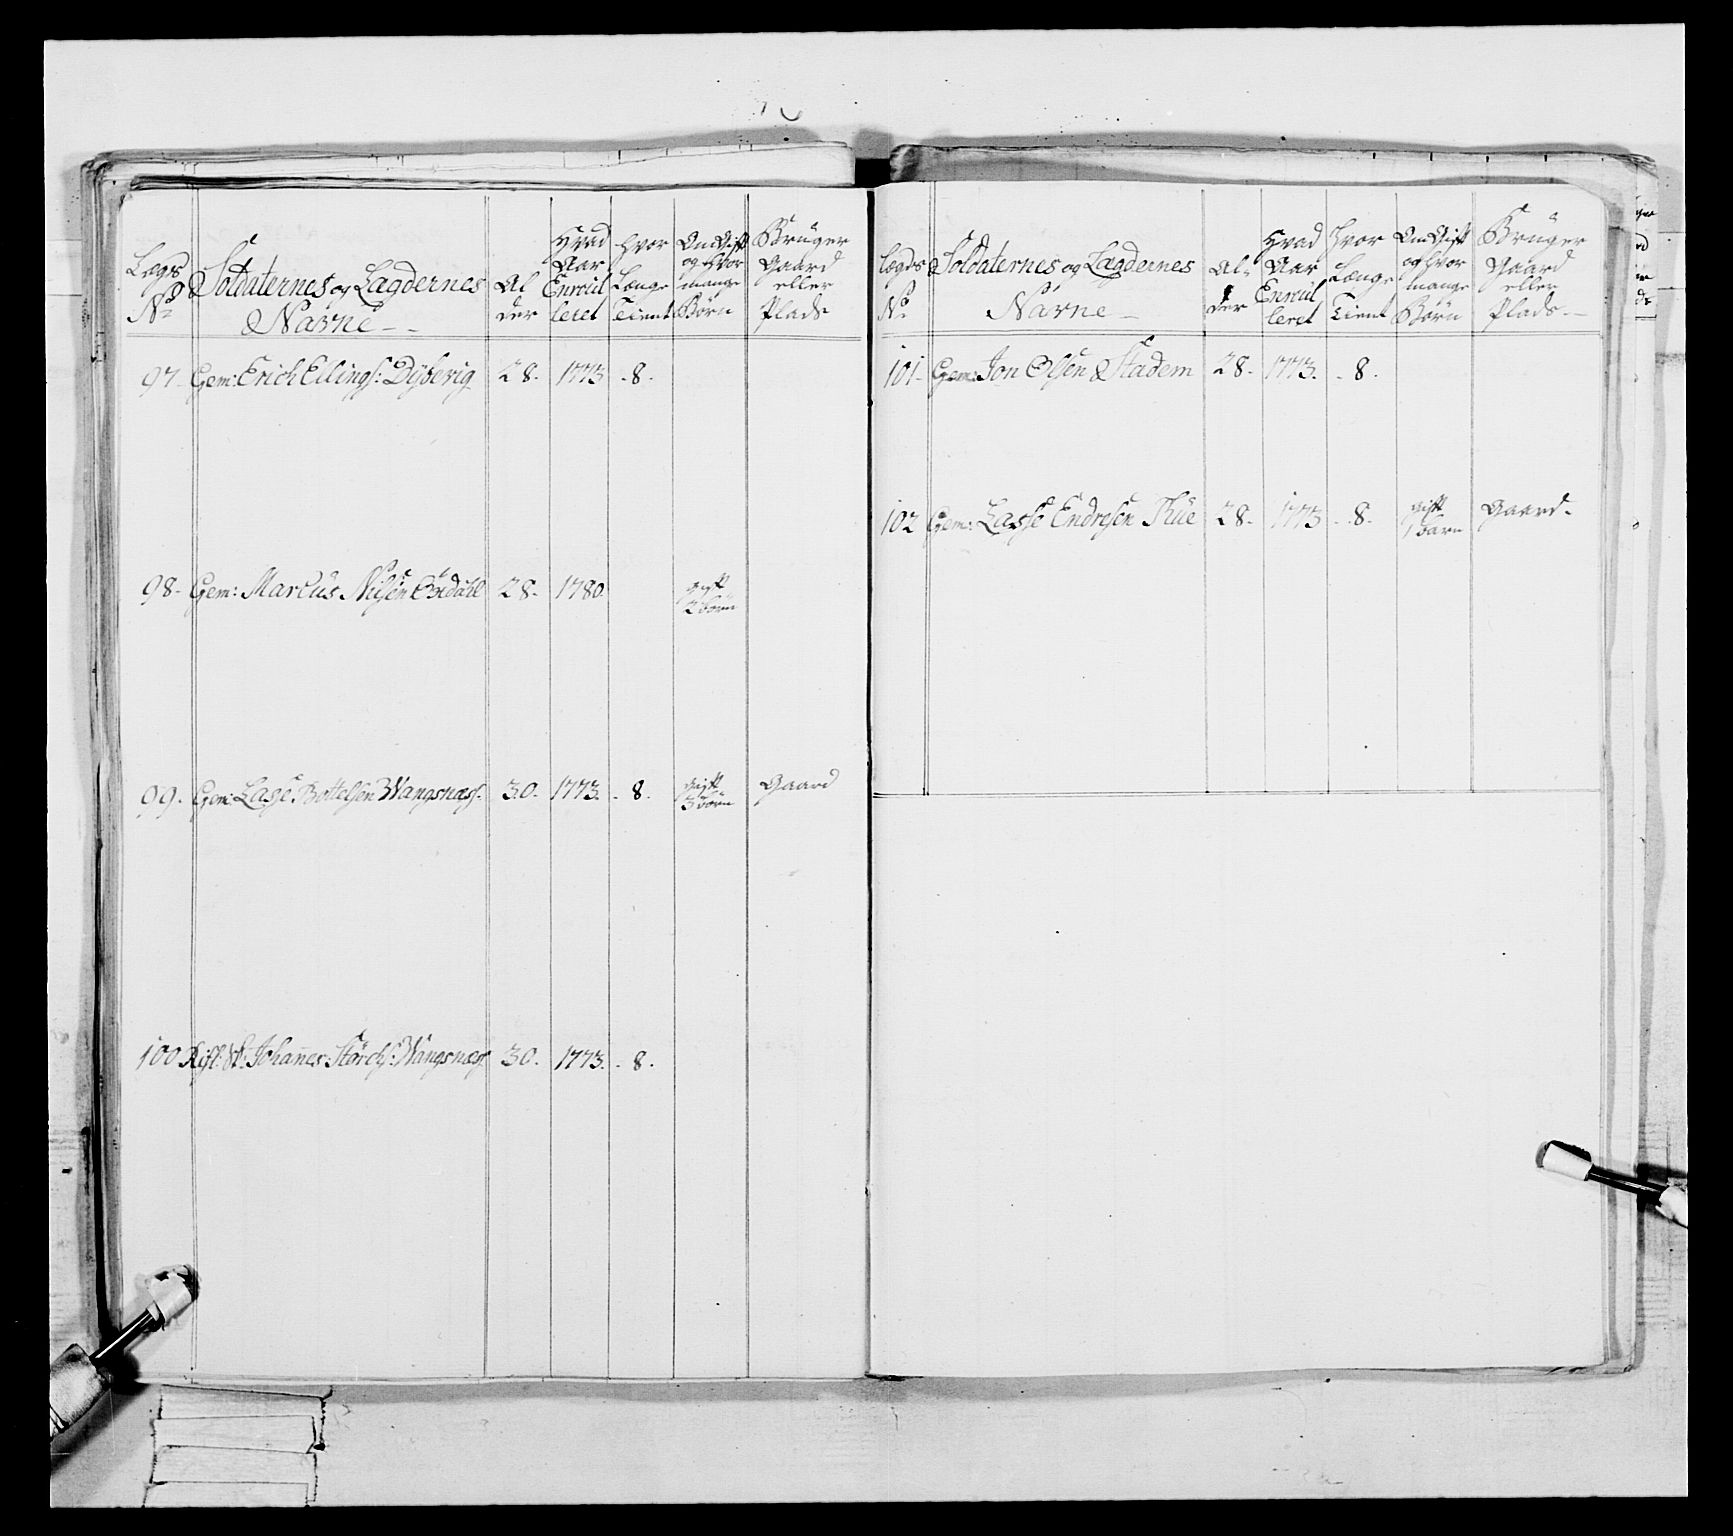 Lægds No | Soldaternes og Lægdernes Navne | Al der | Hvad Aar Enroul leret | Hvor Længe Tient | Om Gift og hvor mange Börn | Bruger Gaard eller Plads
97. Gem: Erich Ellings: Dybevig 28. 1773 8.
98. Gem: Marcus Nilsen 28. 1780. gift 2 börn
99. Gem: Lasse Bottelsen Wangsnæss. 30. 1773. 8. gift 3 börn Gaard
100 Johannes Wangsnæss 30. 1773. 8.
Lægds No | Soldaternes og Lægdernes Navne | Al- der | Hvad Aar Enroul leret | Hvor Længe Tient | Om Gift og hvor mange Börn | Bruger Gaard eller Plads
101. Gem: Jon Olsen Stadem 28. 1773. 8.
102 Gem: Lasse Endresen Thue 28. 1773 8. gift 1 barn Gaard.